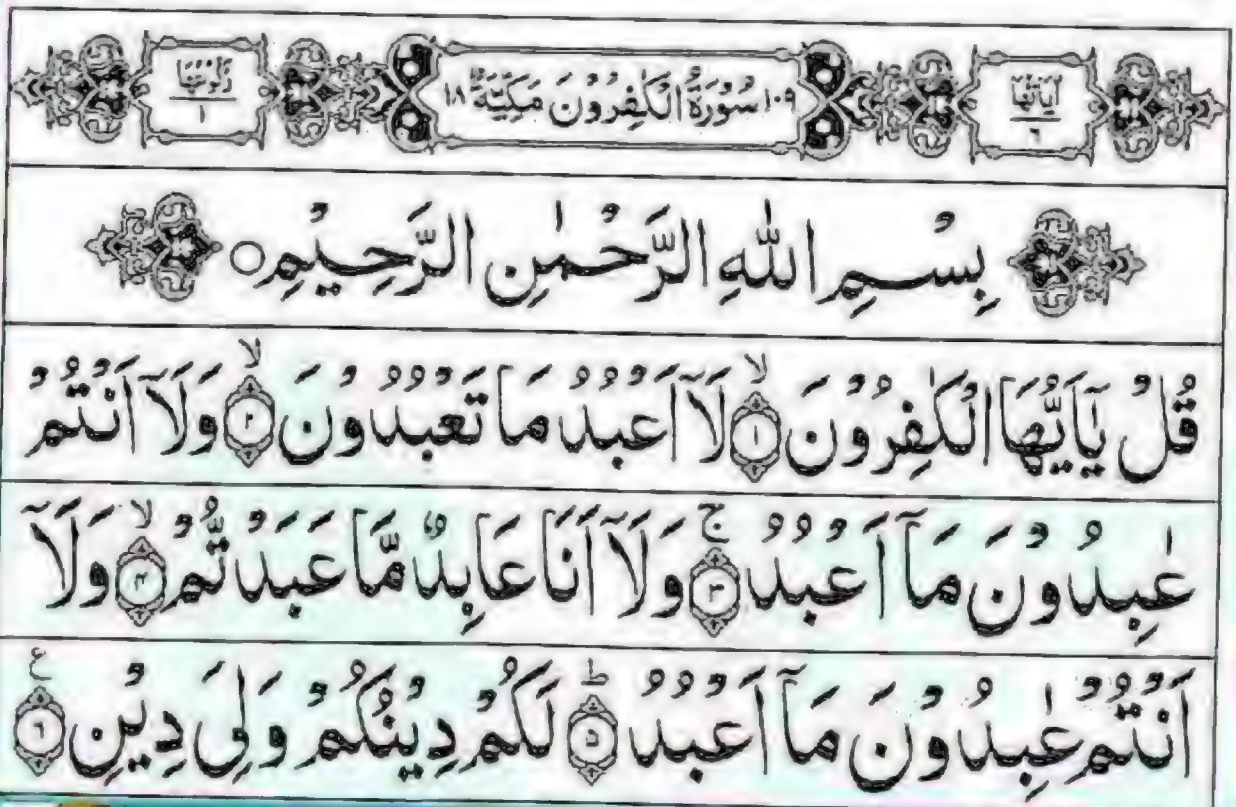 اٰيَاتُهَا ٦
١٠٩ سُوْرَةُ الْكٰفِرُوْنَ مَكِّيَّةٌ ١٨
رُكُوْعُهَا ١
بِسْمِ اللّٰهِ الرَّحْمٰنِ الرَّحِيْمِ ○
قُلْ يٰٓاَيُّهَا الْكٰفِرُوْنَ ۙ﴿١﴾ لَاۤ اَعْبُدُ مَا تَعْبُدُوْنَ ۙ﴿٢﴾ وَلَاۤ اَنْتُمْ
عٰبِدُوْنَ مَاۤ اَعْبُدُ ۚ﴿٣﴾ وَلَاۤ اَنَا عَابِدٌ مَّا عَبَدْتُّمْ ۙ﴿٤﴾ وَلَاۤ
اَنْتُمْ عٰبِدُوْنَ مَاۤ اَعْبُدُ ؕ﴿٥﴾ لَكُمْ دِيْنُكُمْ وَلِيَ دِيْنِ ﴿٦﴾ ع